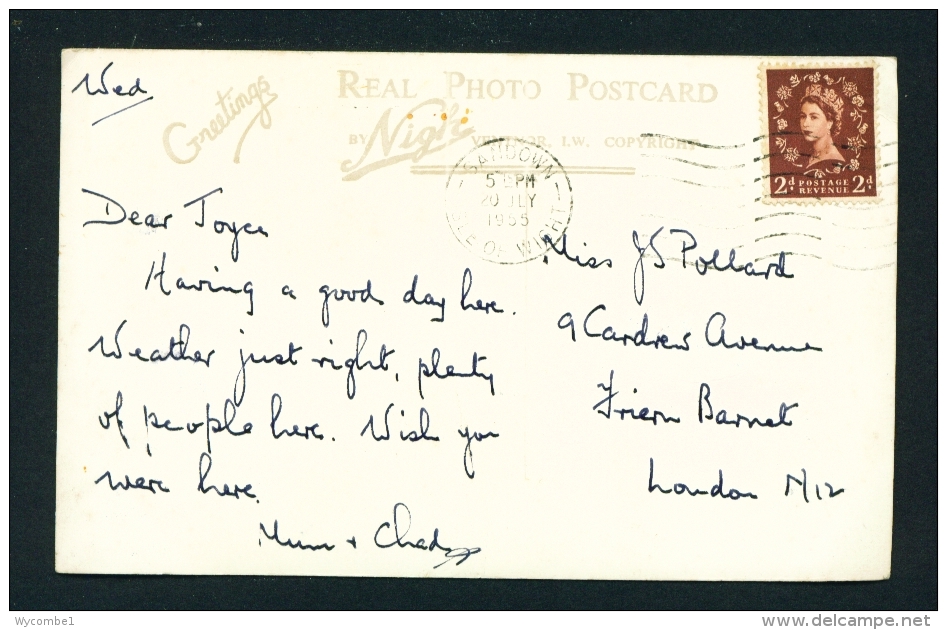 Wed
Greetings
REAL PHOTO POSTCARD
BY Nigh VENTNOR, I.W. COPYRIGHT
SANDOWN
PM
20 JLY
1955
ISLE OF WIGHT
2d POSTAGE REVENUE 2d
Dear Joyce
Having a good day here.
Weather just right, plenty
of people here. Wish you
were here.
Mum +
Miss JS Pollard
9 Cardrew Avenue
Friern Barnet
London N12
Wycombe1
©delcampe.net